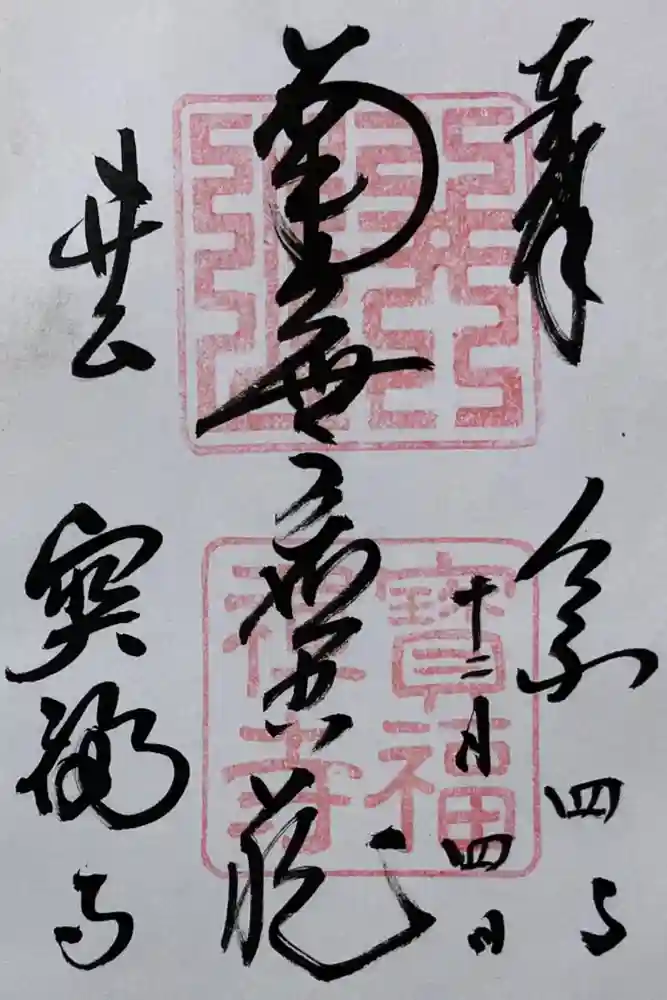 奉拝 令和四年
十二月四日
南無虚空蔵
井山 寶福寺
寶福
禅寺